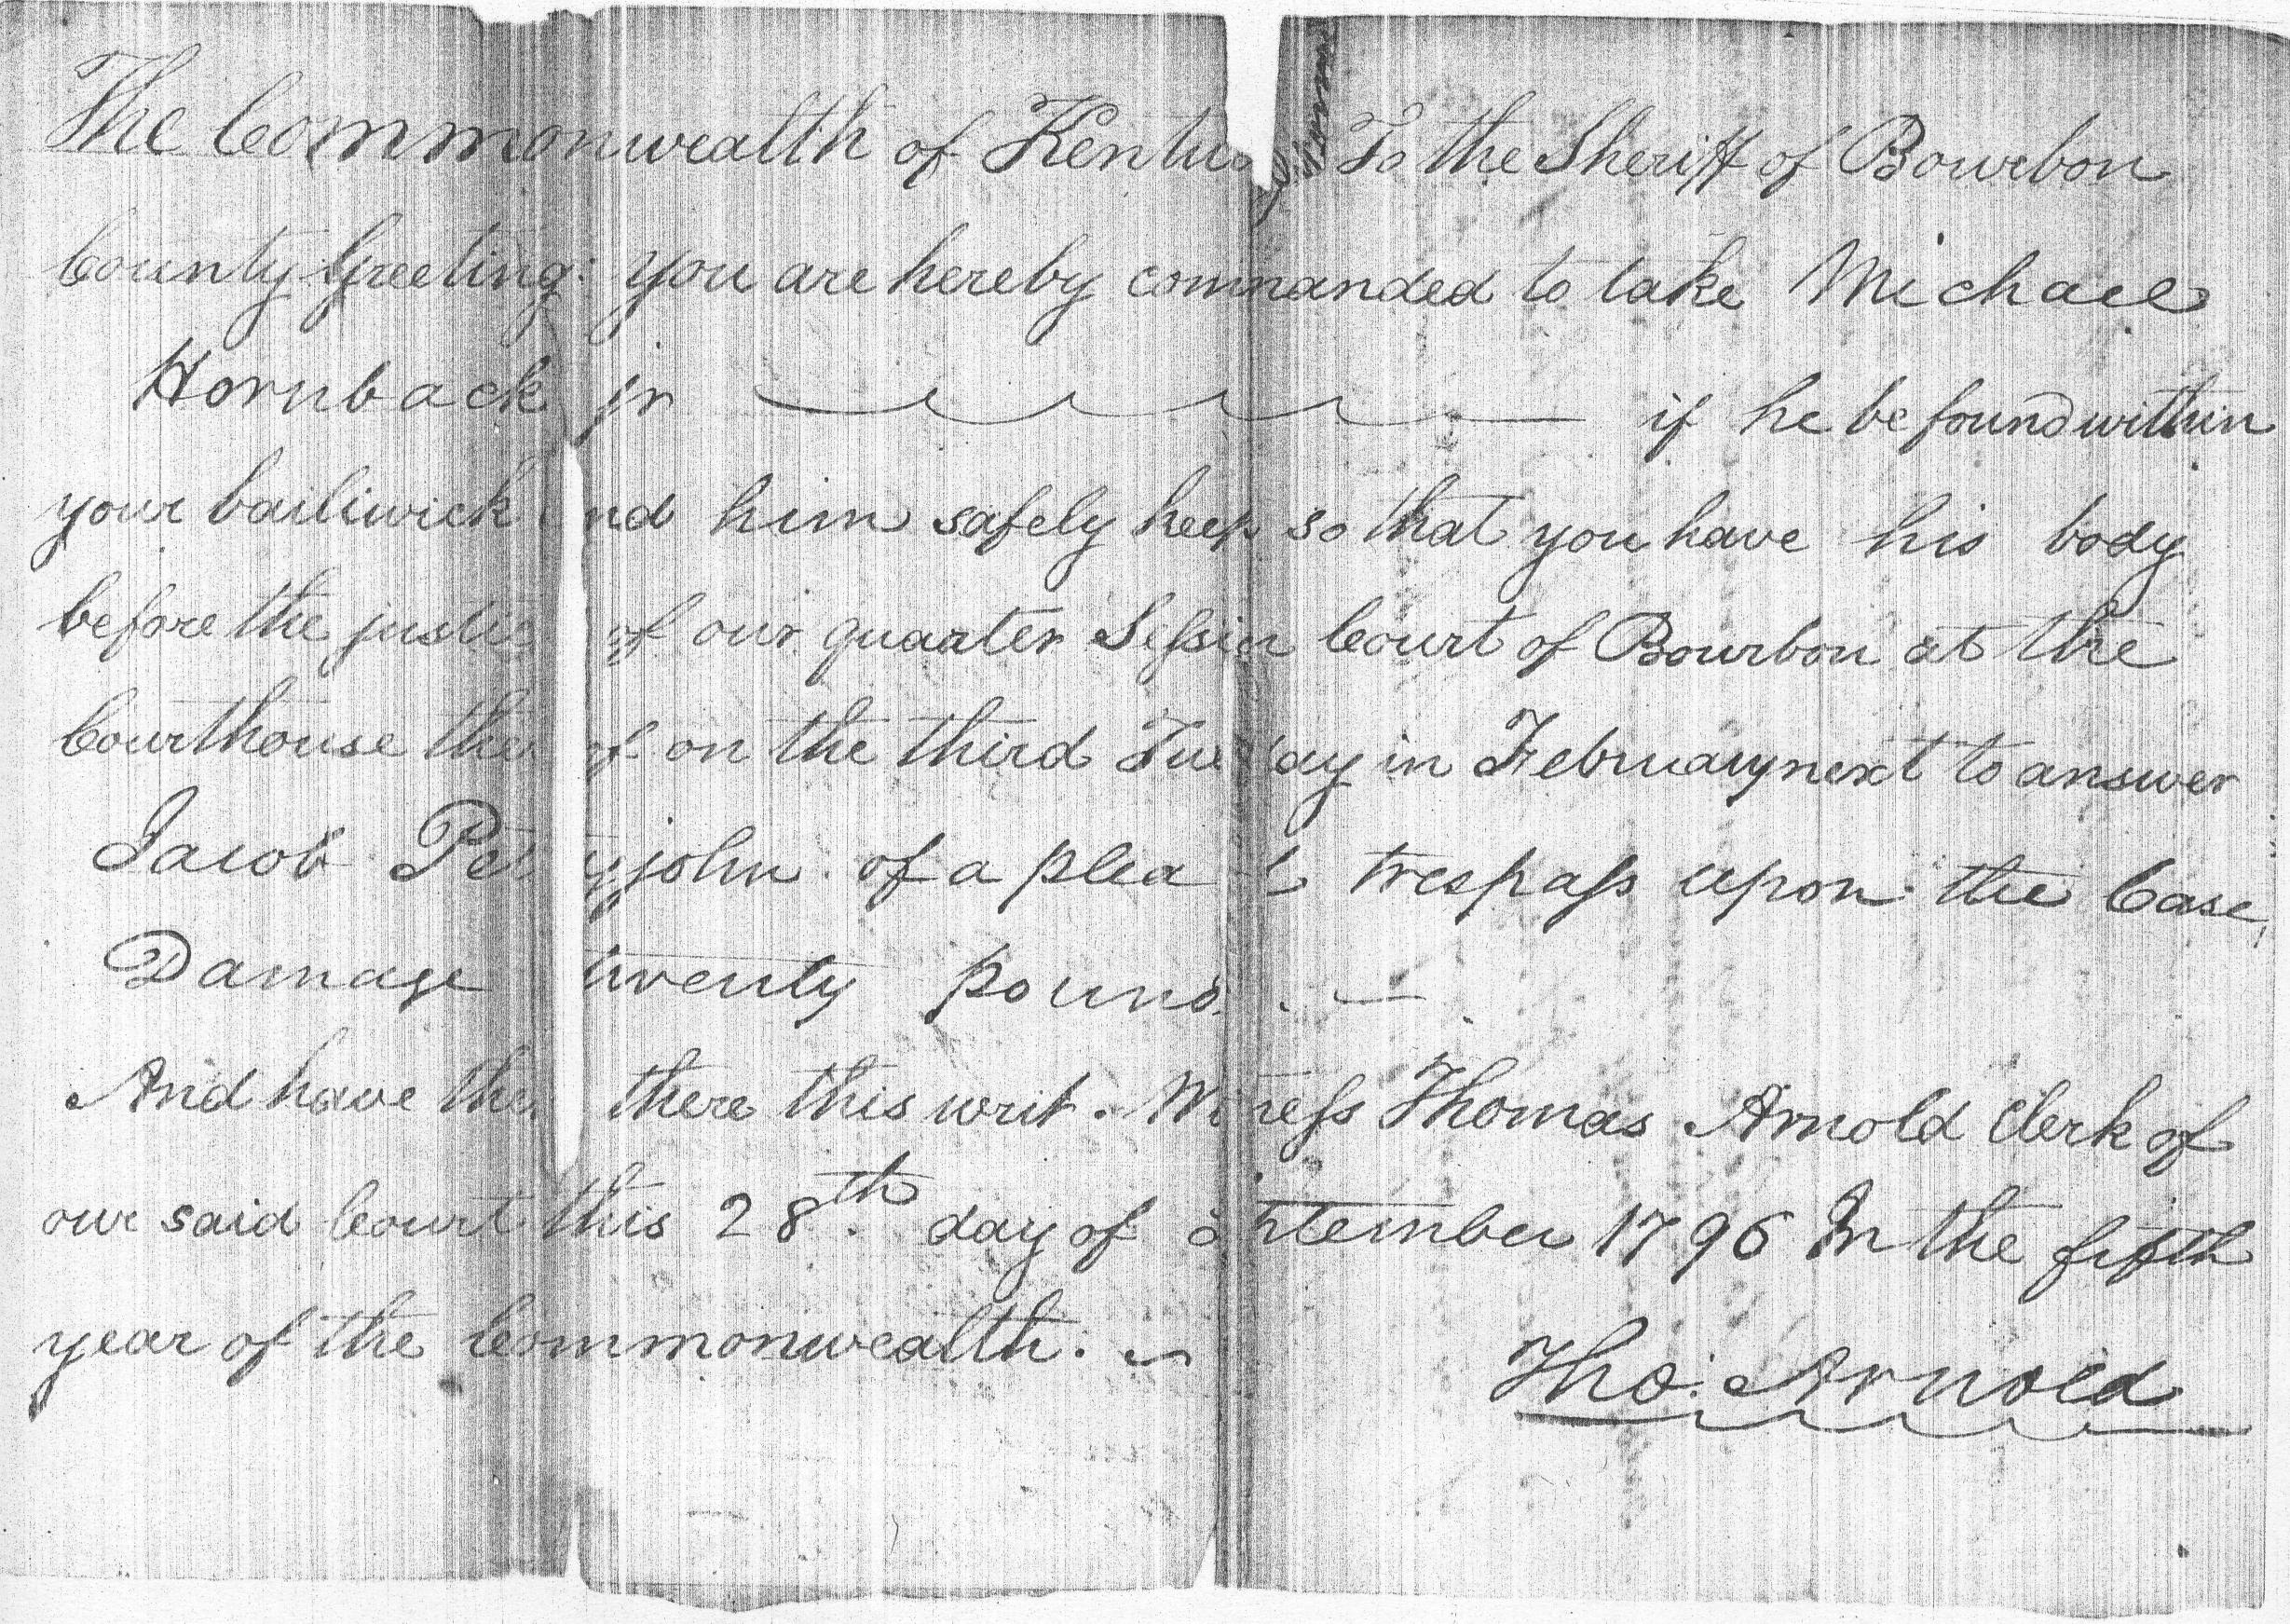 The Commonwealth of Kentuc To the Sheriff of Bourbon
County Greeting: you are hereby commanded to take Michael
Hornback jr if he be found within
your bailiwick and him safely keep so that you have his body
before the justic of our quarter Seſsion Court of Bourbon at the
Courthouse the of on the third Tue day in February next to answer
Jacob Pe yjohn of a plea trespaſs upon the Case,
Damage twenty pound
And have the there this writ. Wi neſs Thomas Arnold Clerk of
our said Court this 28th day of September 1796 In the fifth
year of the Commonwealth.
Tho. Arnold